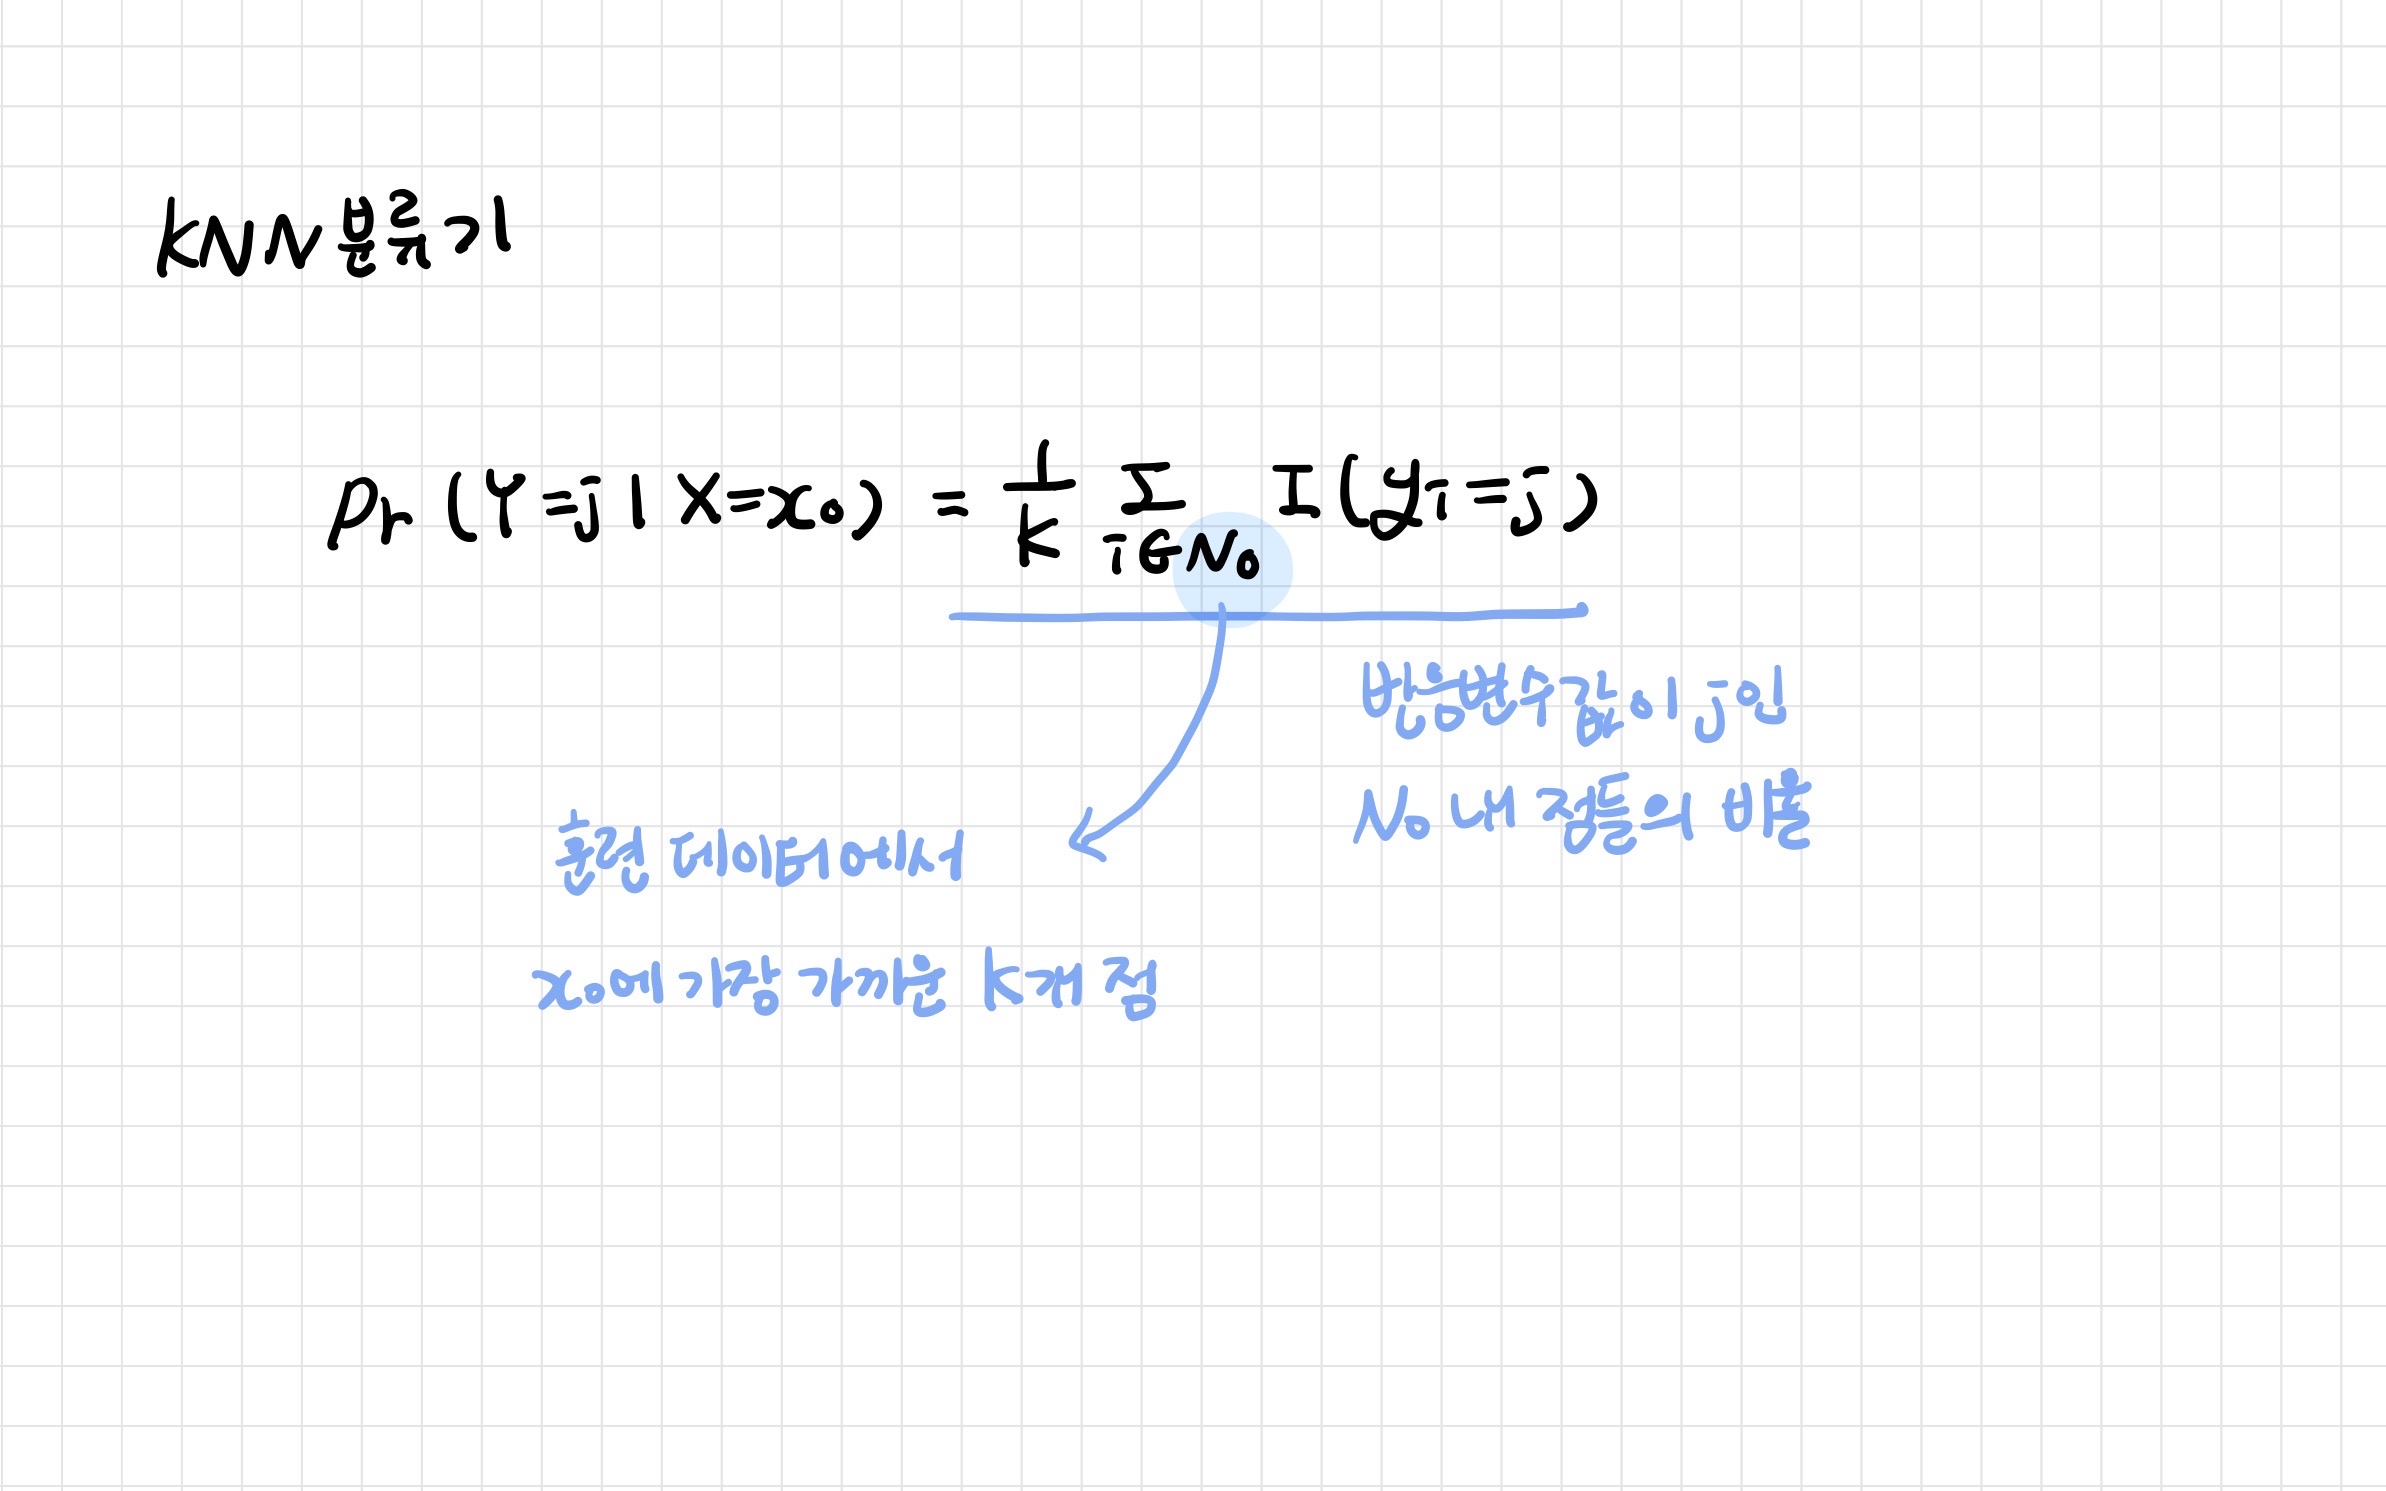 KNN 분류기
Pr (Y=j | X=x₀) = 1/K Σ i∈N₀ I(yi=j)
반응변수 값이 j인
N₀ 내 점들의 비율
훈련 데이터에서
x₀에 가장 가까운 K개 점